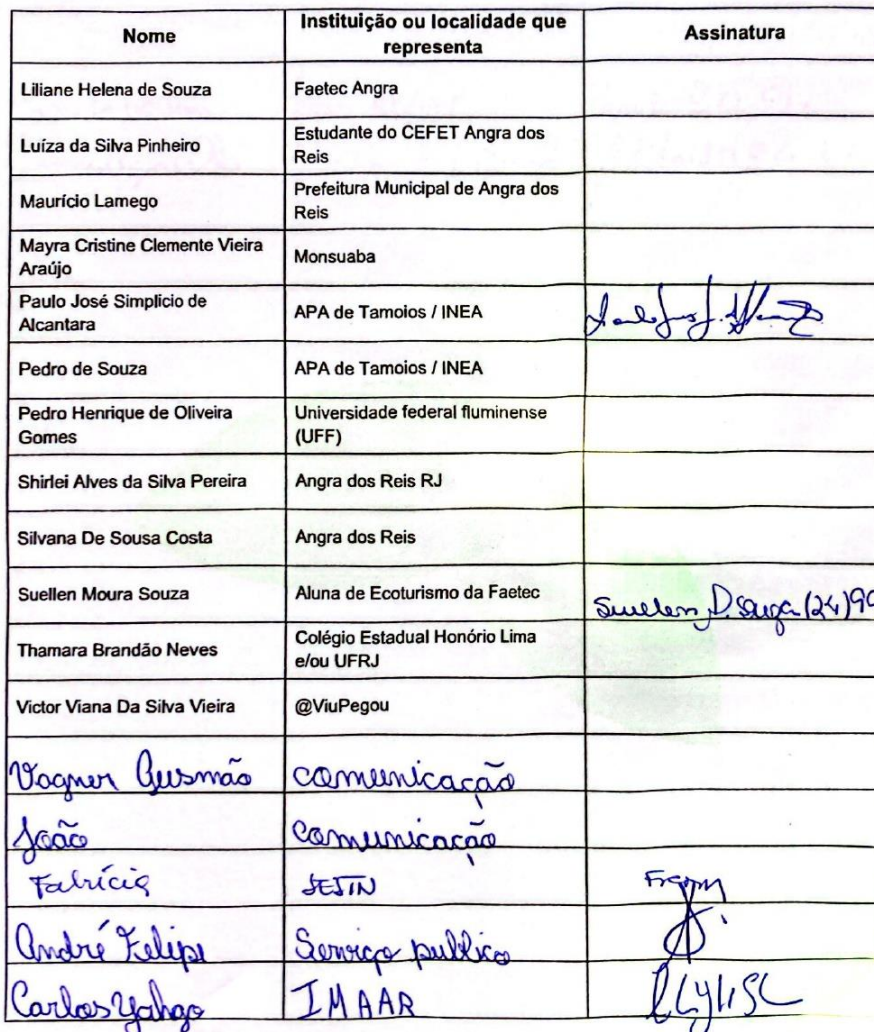 Nome
Instituição ou localidade que
representa
Assinatura
Liliane Helena de Souza
Faetec Angra
Luíza da Silva Pinheiro
Estudante do CEFET Angra dos
Reis
Maurício Lamego
Prefeitura Municipal de Angra dos
Reis
Mayra Cristine Clemente Vieira
Araújo
Monsuaba
Paulo José Simplicio de
Alcantara
APA de Tamoios / INEA
Pedro de Souza
APA de Tamoios / INEA
Pedro Henrique de Oliveira
Gomes
Universidade federal fluminense
(UFF)
Shirlei Alves da Silva Pereira
Angra dos Reis RJ
Silvana De Sousa Costa
Angra dos Reis
Suellen Moura Souza
Aluna de Ecoturismo da Faetec
Suellen
Thamara Brandão Neves
Colégio Estadual Honório Lima
e/ou UFRJ
Victor Viana Da Silva Vieira
@ViuPegou
Vagner Gusmão
comunicação
João
Comunicação
André Felipe
Serviço publico
Carlos Yahgo
IMAAR